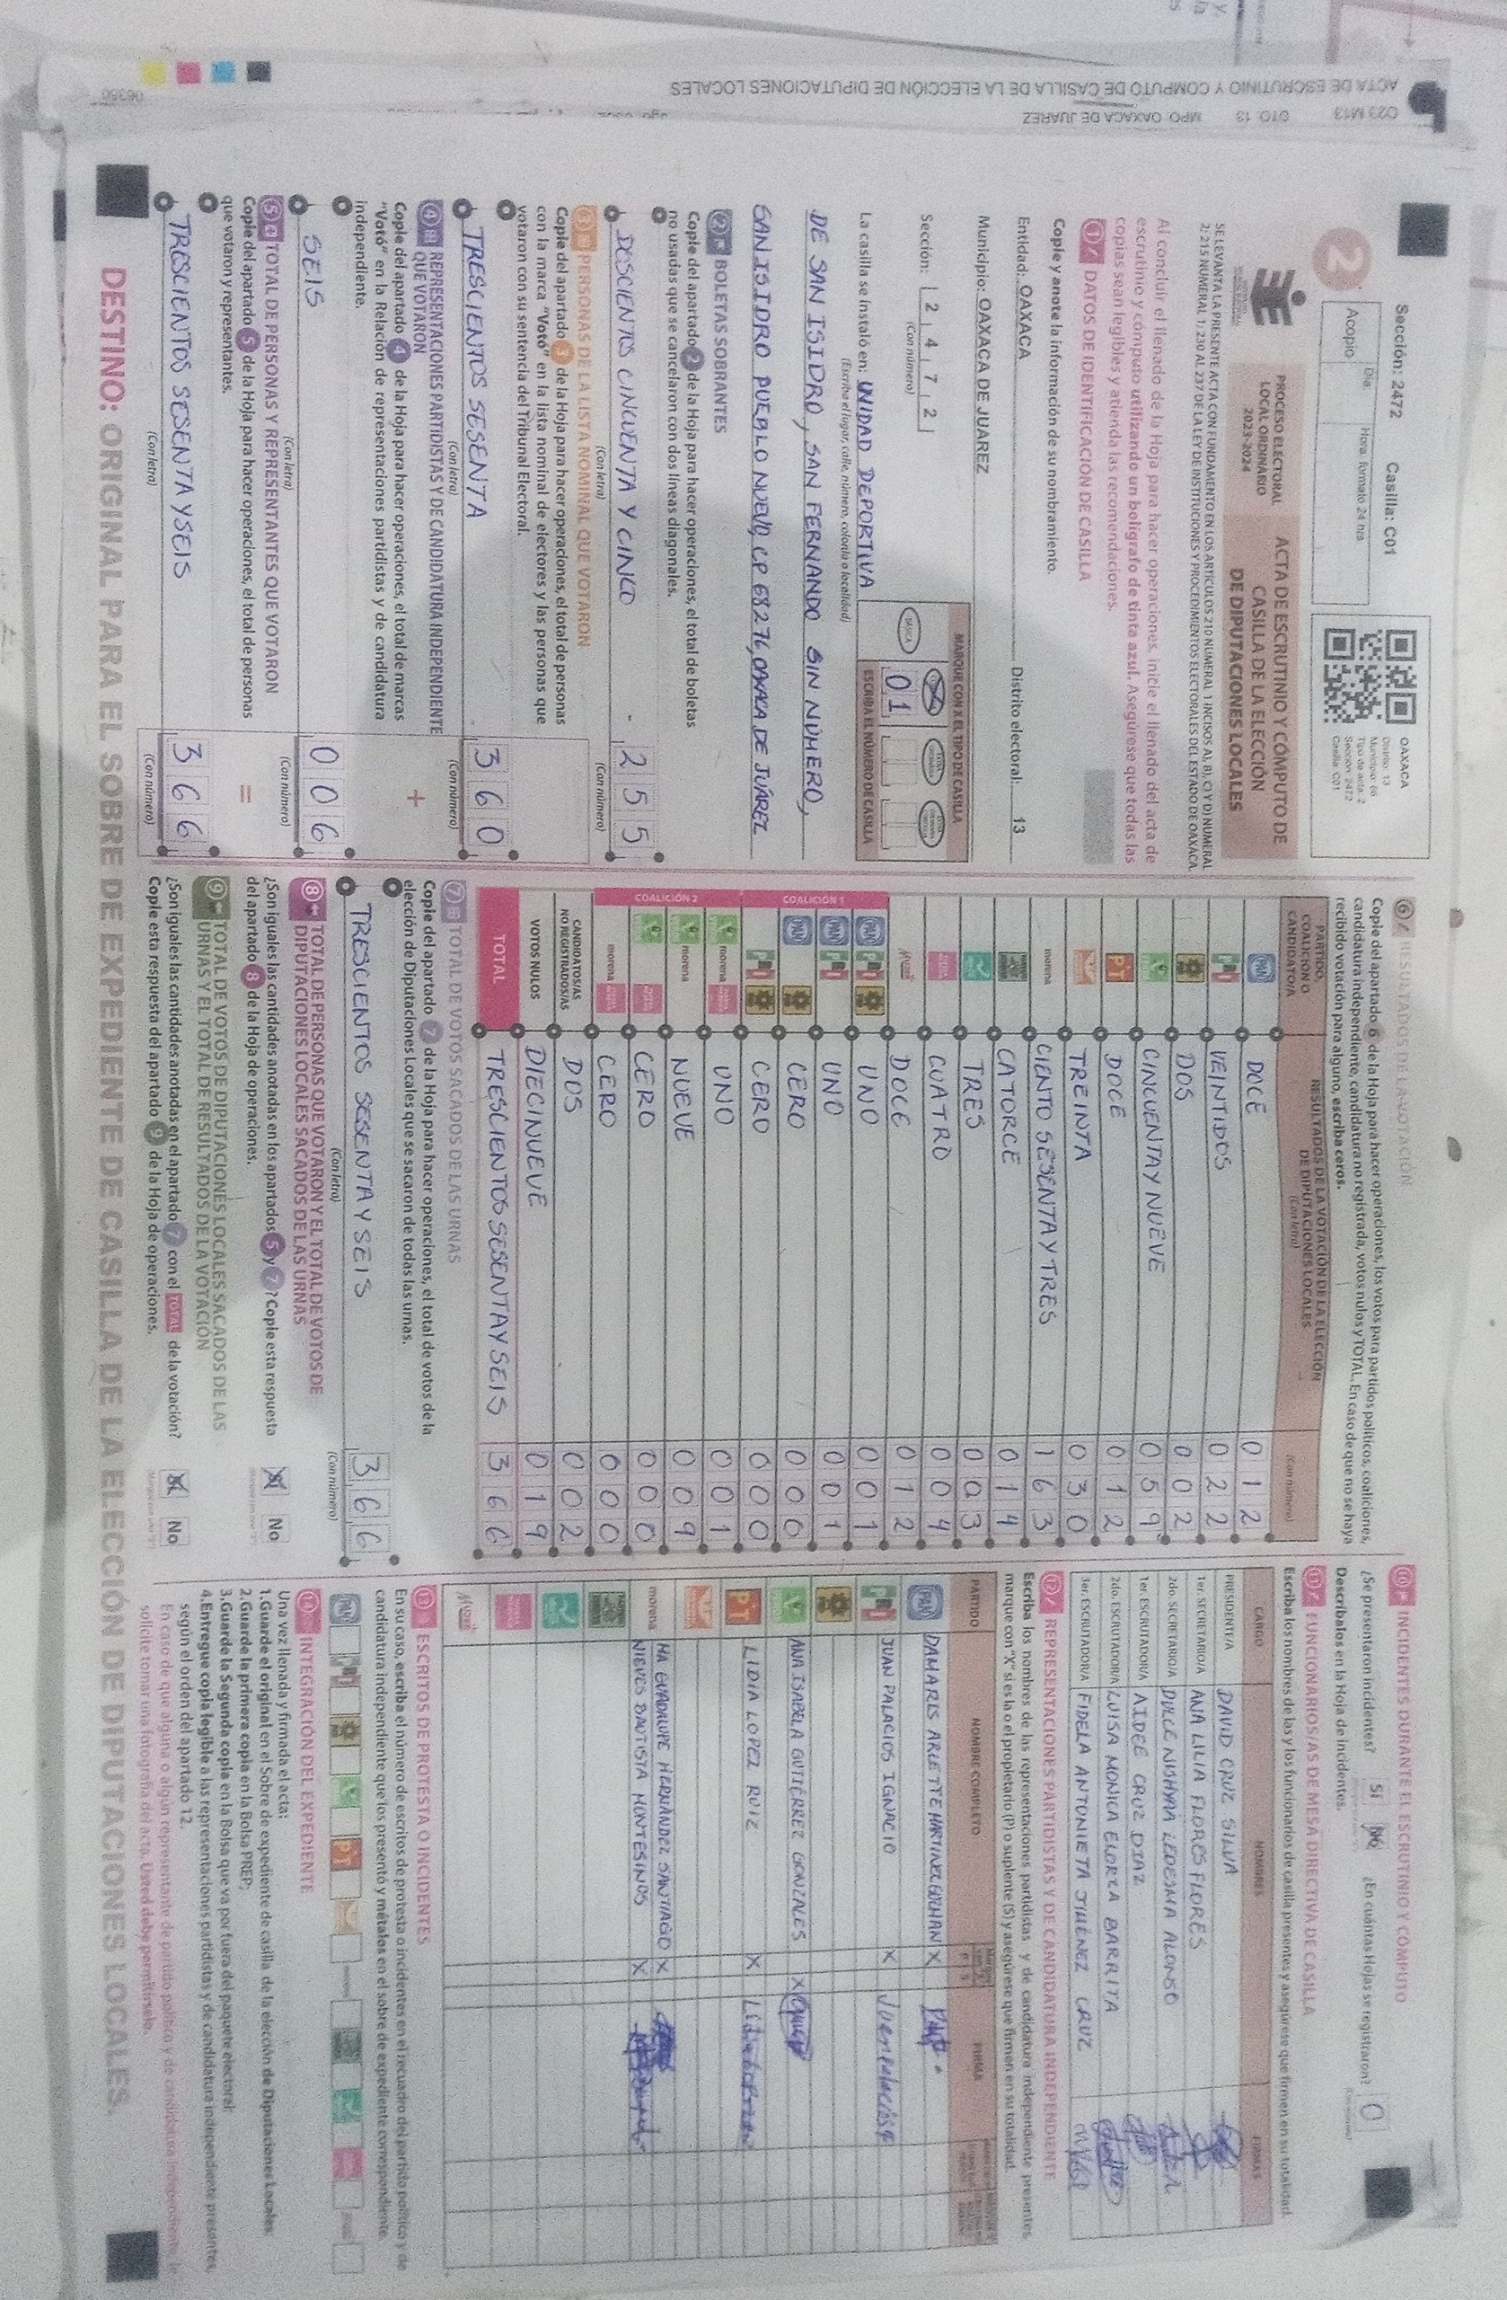 ACTA DE ESCRUTINIO Y CÓMPUTO DE CASILLA DE LA ELECCIÓN DE DIPUTACIONES LOCALES
023 M13 DTO. 13 MPO. OAXACA DE JUAREZ
06350
Sección: 2472 Casilla: C01
OAXACA
Distrito: 13
Municipio: 66
Tipo de acta: 2
Sección: 2472
Casilla: C01
2
Acopio
Día:
Hora: formato 24 hrs
PROCESO ELECTORAL
LOCAL ORDINARIO
2023-2024
ACTA DE ESCRUTINIO Y CÓMPUTO DE
CASILLA DE LA ELECCIÓN
DE DIPUTACIONES LOCALES
SE LEVANTA LA PRESENTE ACTA CON FUNDAMENTO EN LOS ARTÍCULOS 210 NUMERAL 1 INCISOS A), B), C) Y D) NUMERAL
2; 215 NUMERAL 1; 230 AL 237 DE LA LEY DE INSTITUCIONES Y PROCEDIMIENTOS ELECTORALES DEL ESTADO DE OAXACA.
Al concluir el llenado de la Hoja para hacer operaciones, inicie el llenado del acta de
escrutinio y cómputo utilizando un bolígrafo de tinta azul. Asegúrese que todas las
copias sean legibles y atienda las recomendaciones.
1 DATOS DE IDENTIFICACIÓN DE CASILLA
Copie y anote la información de su nombramiento.
Entidad: OAXACA Distrito electoral: 13
Municipio: OAXACA DE JUAREZ
Sección: 2 4 7 2
(Con número)
MARQUE CON X EL TIPO DE CASILLA
BÁSICA
0 1
ESCRIBA EL NÚMERO DE CASILLA
La casilla se instaló en: UNIDAD DEPORTIVA
(Escriba el lugar, calle, número, colonia o localidad)
DE SAN ISIDRO, SAN FERNANDO SIN NÚMERO,
SAN ISIDRO PUEBLO NUEVO, CP 68276, OAXACA DE JUÁREZ
2 BOLETAS SOBRANTES
Copie del apartado 2 de la Hoja para hacer operaciones, el total de boletas
no usadas que se cancelaron con dos líneas diagonales.
DESCIENTOS CINCUENTA Y CINCO 2 5 5
(Con letra) (Con número)
3 PERSONAS DE LA LISTA NOMINAL QUE VOTARON
Copie del apartado 3 de la Hoja para hacer operaciones, el total de personas
con la marca "Votó" en la lista nominal de electores y las personas que
votaron con su sentencia del Tribunal Electoral.
TRESCIENTOS SESENTA 3 6 0
(Con letra) (Con número)
4 REPRESENTACIONES PARTIDISTAS Y DE CANDIDATURA INDEPENDIENTE
QUE VOTARON
+
Copie del apartado 4 de la Hoja para hacer operaciones, el total de marcas
"Votó" en la Relación de representaciones partidistas y de candidatura
independiente.
SEIS 0 0 6
(Con letra) (Con número)
5 TOTAL DE PERSONAS Y REPRESENTANTES QUE VOTARON
=
Copie del apartado 5 de la Hoja para hacer operaciones, el total de personas
que votaron y representantes.
TRESCIENTOS SESENTA Y SEIS 3 6 6
(Con letra) (Con número)
6 RESULTADOS DE LA VOTACIÓN
Copie del apartado 6 de la Hoja para hacer operaciones, los votos para partidos políticos, coaliciones,
candidatura independiente, candidatura no registrada, votos nulos y TOTAL. En caso de que no se haya
recibido votación para alguno, escriba ceros.
PARTIDO,
COALICIÓN O
CANDIDATO/A
RESULTADOS DE LA VOTACIÓN DE LA ELECCIÓN
DE DIPUTACIONES LOCALES
(Con letra)
(Con número)
PAN DOCE 0 1 2
PRI VEINTIDOS 0 2 2
DOS 0 0 2
CINCUENTA Y NUEVE 0 5 9
PT DOCE 0 1 2
TREINTA 0 3 0
morena CIENTO SESENTA Y TRES 1 6 3
CATORCE 0 1 4
TRES 0 0 3
CUATRO 0 0 4
DOCE 0 1 2
COALICIÓN 1
PAN PRI UNO 0 0 1
PAN PRI UNO 0 0 1
PAN CERO 0 0 0
PRI CERO 0 0 0
COALICIÓN 2
morena UNO 0 0 1
morena NUEVE 0 0 9
CERO 0 0 0
morena CERO 0 0 0
CANDIDATOS/AS
NO REGISTRADOS/AS DOS 0 0 2
VOTOS NULOS DIECINUEVE 0 1 9
TOTAL TRESCIENTOS SESENTA Y SEIS 3 6 6
7 TOTAL DE VOTOS SACADOS DE LAS URNAS
Copie del apartado 7 de la Hoja para hacer operaciones, el total de votos de la
elección de Diputaciones Locales que se sacaron de todas las urnas.
TRESCIENTOS SESENTA Y SEIS 3 6 6
(Con letra) (Con número)
8 TOTAL DE PERSONAS QUE VOTARON Y EL TOTAL DE VOTOS DE
DIPUTACIONES LOCALES SACADOS DE LAS URNAS
¿Son iguales las cantidades anotadas en los apartados 5 y 7? Copie esta respuesta
del apartado 8 de la Hoja de operaciones.
Sí No
9 TOTAL DE VOTOS DE DIPUTACIONES LOCALES SACADOS DE LAS
URNAS Y EL TOTAL DE RESULTADOS DE LA VOTACIÓN
¿Son iguales las cantidades anotadas en el apartado 7 con el TOTAL de la votación?
Copie esta respuesta del apartado 9 de la Hoja de operaciones.
Sí No
10 INCIDENTES DURANTE EL ESCRUTINIO Y CÓMPUTO
¿Se presentaron incidentes? Sí No ¿En cuántas Hojas se registraron? 0
Descríbalos en la Hoja de incidentes.
11 FUNCIONARIOS/AS DE MESA DIRECTIVA DE CASILLA
Escriba los nombres de las y los funcionarios de casilla presentes y asegúrese que firmen en su totalidad.
CARGO NOMBRES FIRMAS
PRESIDENTE/A DAVID CRUZ SILVA
1er. SECRETARIO/A ANA LILIA FLORES FLORES
2do. SECRETARIO/A DULCE NISHYRA LEDESMA ALONSO
1er. ESCRUTADOR/A AIDEE CRUZ DIAZ
2do. ESCRUTADOR/A LUISA MONICA ELORZA BARRITA
3er. ESCRUTADOR/A FIDELA ANTONIETA JIMÉNEZ CRUZ
12 REPRESENTACIONES PARTIDISTAS Y DE CANDIDATURA INDEPENDIENTE
Escriba los nombres de las representaciones partidistas y de candidatura independiente presentes,
marque con "X" si es la o el propietario (P) o suplente (S) y asegúrese que firmen en su totalidad.
PARTIDO NOMBRE COMPLETO FIRMA
PAN DAMARIS ARLETTE MARTINEZ GUZMAN X
PRI JUAN PALACIOS IGNACIO X
ANA ISABELA GUTIÉRREZ GONZALES X
PT LIDIA LOPEZ RUIZ X
morena MA GUADALUPE HERNÁNDEZ SANTIAGO X
NIEVES BAUTISTA MONTESINOS X
13 ESCRITOS DE PROTESTA O INCIDENTES
En su caso, escriba el número de escritos de protesta o incidentes en el recuadro del partido político y de
candidatura independiente que los presentó y métalos en el sobre de expediente correspondiente.
14 INTEGRACIÓN DEL EXPEDIENTE
Una vez llenada y firmada el acta:
1.Guarde el original en el Sobre de expediente de casilla de la elección de Diputaciones Locales;
2.Guarde la primera copia en la Bolsa PREP;
3.Guarde la Segunda copia en la Bolsa que va por fuera del paquete electoral;
4.Entregue copia legible a las representaciones partidistas y de candidatura independiente presentes,
según el orden del apartado 12.
En caso de que alguna o algún representante de partido político y de candidatura independiente, le
solicite tomar una fotografía del acta, Usted debe permitírselo.
DESTINO: ORIGINAL PARA EL SOBRE DE EXPEDIENTE DE CASILLA DE LA ELECCIÓN DE DIPUTACIONES LOCALES.